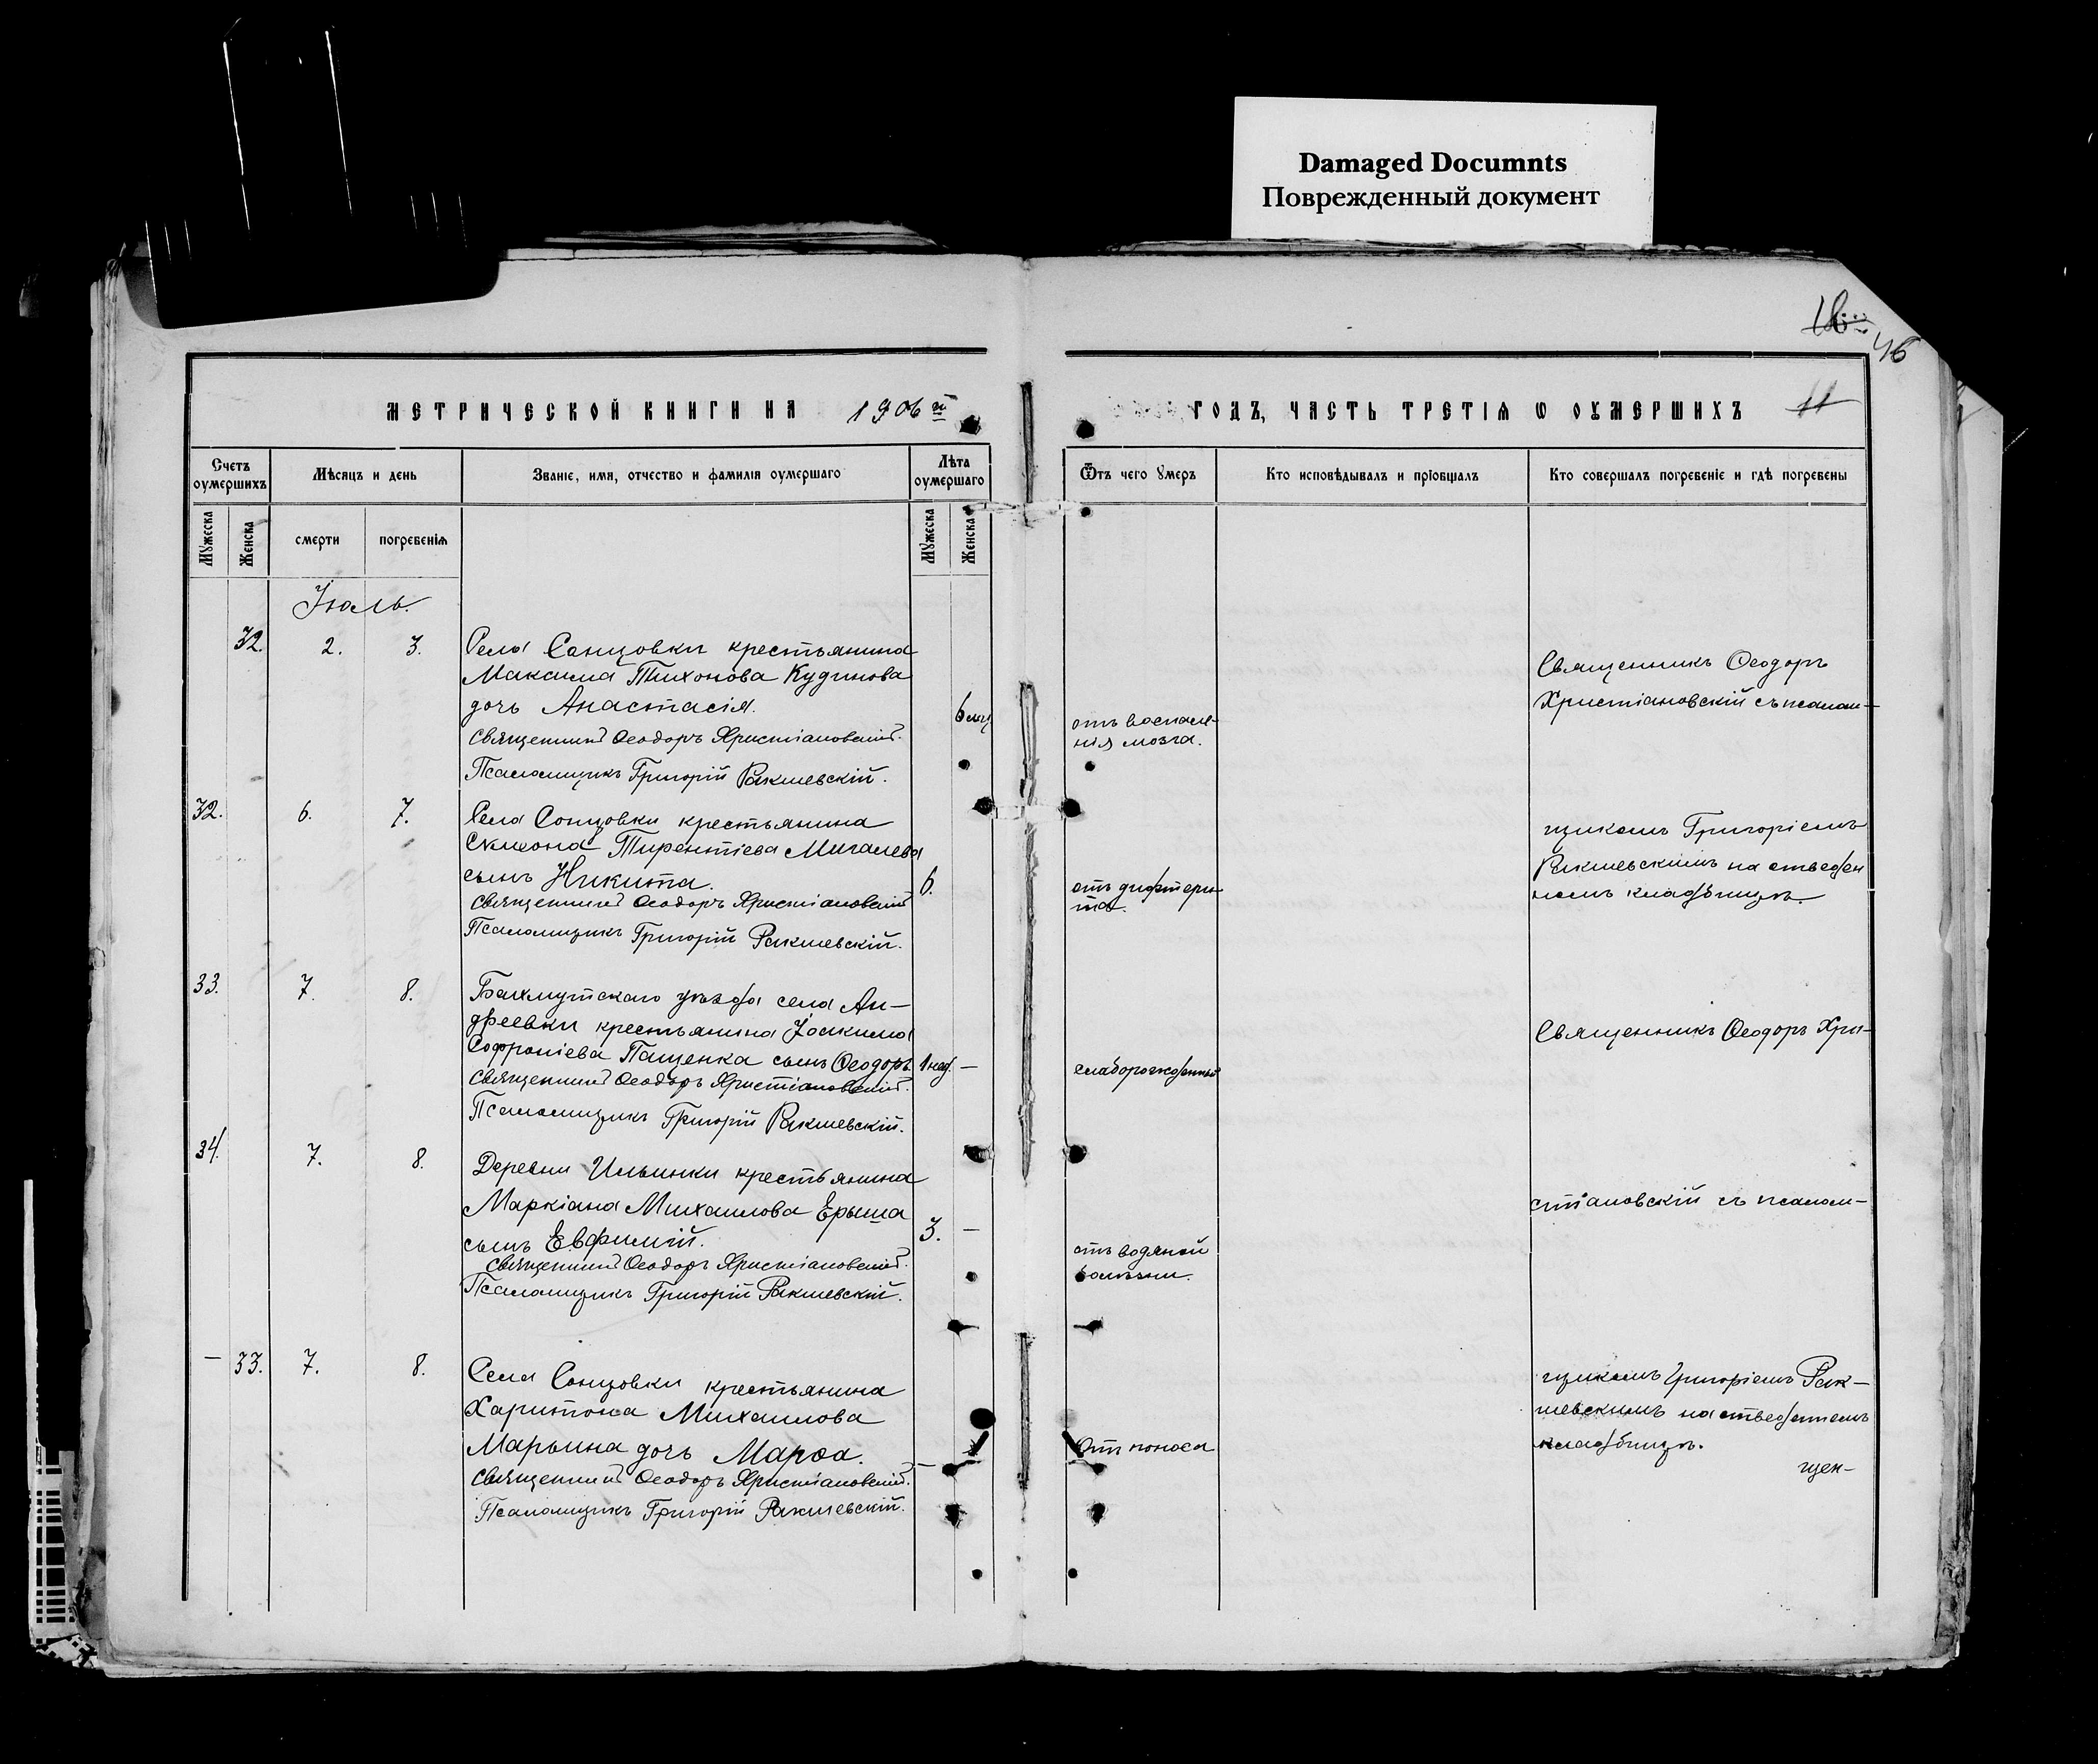 Damaged Documnts
Поврежденный документ
46
МЕТРИЧЕСКОЙ КНИГИ НА 1906й ГОДЪ, ЧАСТЬ ТРЕТІѦ Ѡ ОУМЕРШИХЪ 11
Счетъ оумершихъ
Мѣсяцъ и день
Званіе, имя, отчество и фамилія оумершаго
Лѣта оумершаго
Ѿтъ чего умеръ
Кто исповѣдывалъ и пріобщалъ
Кто совершалъ погребеніе и гдѣ погребены
Мужеска
Женска
смерти
погребенія
Мужеска
Женска
Іюль.
32. 2. 3. Села Сонцовки крестьянина
Максима Тихонова Кудинова
дочь Анастасія. 6 мѣс.
Священникъ Ѳеодоръ Христіановскій.
Псаломщикъ Григорій Ракшевскій.
отъ воспале-
нія мозга.
Священникъ Ѳеодоръ
Христіановскій съ псалом-
32. 6. 7. Села Сонцовки крестьянина
Симеона Терентіева Мигалева
сынъ Никита. 6.
Священникъ Ѳеодоръ Христіановскій
Псаломщикъ Григорій Ракшевскій.
отъ дифтери-
та.
щикомъ Григоріемъ
Ракшевскимъ на отведен
номъ кладбищѣ.
33. 7. 8. Бахмутскаго уѣзда села Ан-
дреевки крестьянина Іоакима
Софроніева Пащенка сынъ Ѳеодоръ. 1 нед. —
Священникъ Ѳеодоръ Христіановскій.
Псаломщикъ Григорій Ракшевскій.
слаборожденный
Священникъ Ѳеодоръ Хри-
34. 7. 8. Деревни Ильинки крестьянина
Маркіана Михаилова Ерыша
сынъ Евфимій. 3. —
Священникъ Ѳеодоръ Христіановскій.
Псаломщикъ Григорій Ракшевскій.
отъ водяной
болѣзни.
стіановскій съ псалом-
— 33. 7. 8. Села Сонцовки крестьянина
Харитона Михаилова
Марьина дочь Марѳа. —
Священникъ Ѳеодоръ Христіановскій.
Псаломщикъ Григорій Ракшевскій.
Отъ поноса
щикомъ Григоріемъ Рак-
шевскимъ на отведенномъ
кладбищѣ.
щен-